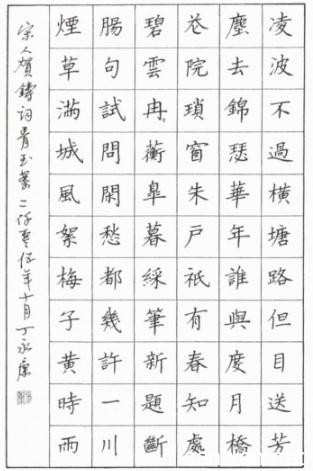 凌波不過橫塘路但目送芳
塵去錦瑟華年誰與度月橋
花院瑣窗朱戶祇有春知處
碧雲冉〻蘅皋暮綵筆新題斷
腸句試問閑愁都幾許一川
煙草滿城風絮梅子黃時雨
宋人賀鑄詞青玉案二仟零伍年十月丁永康